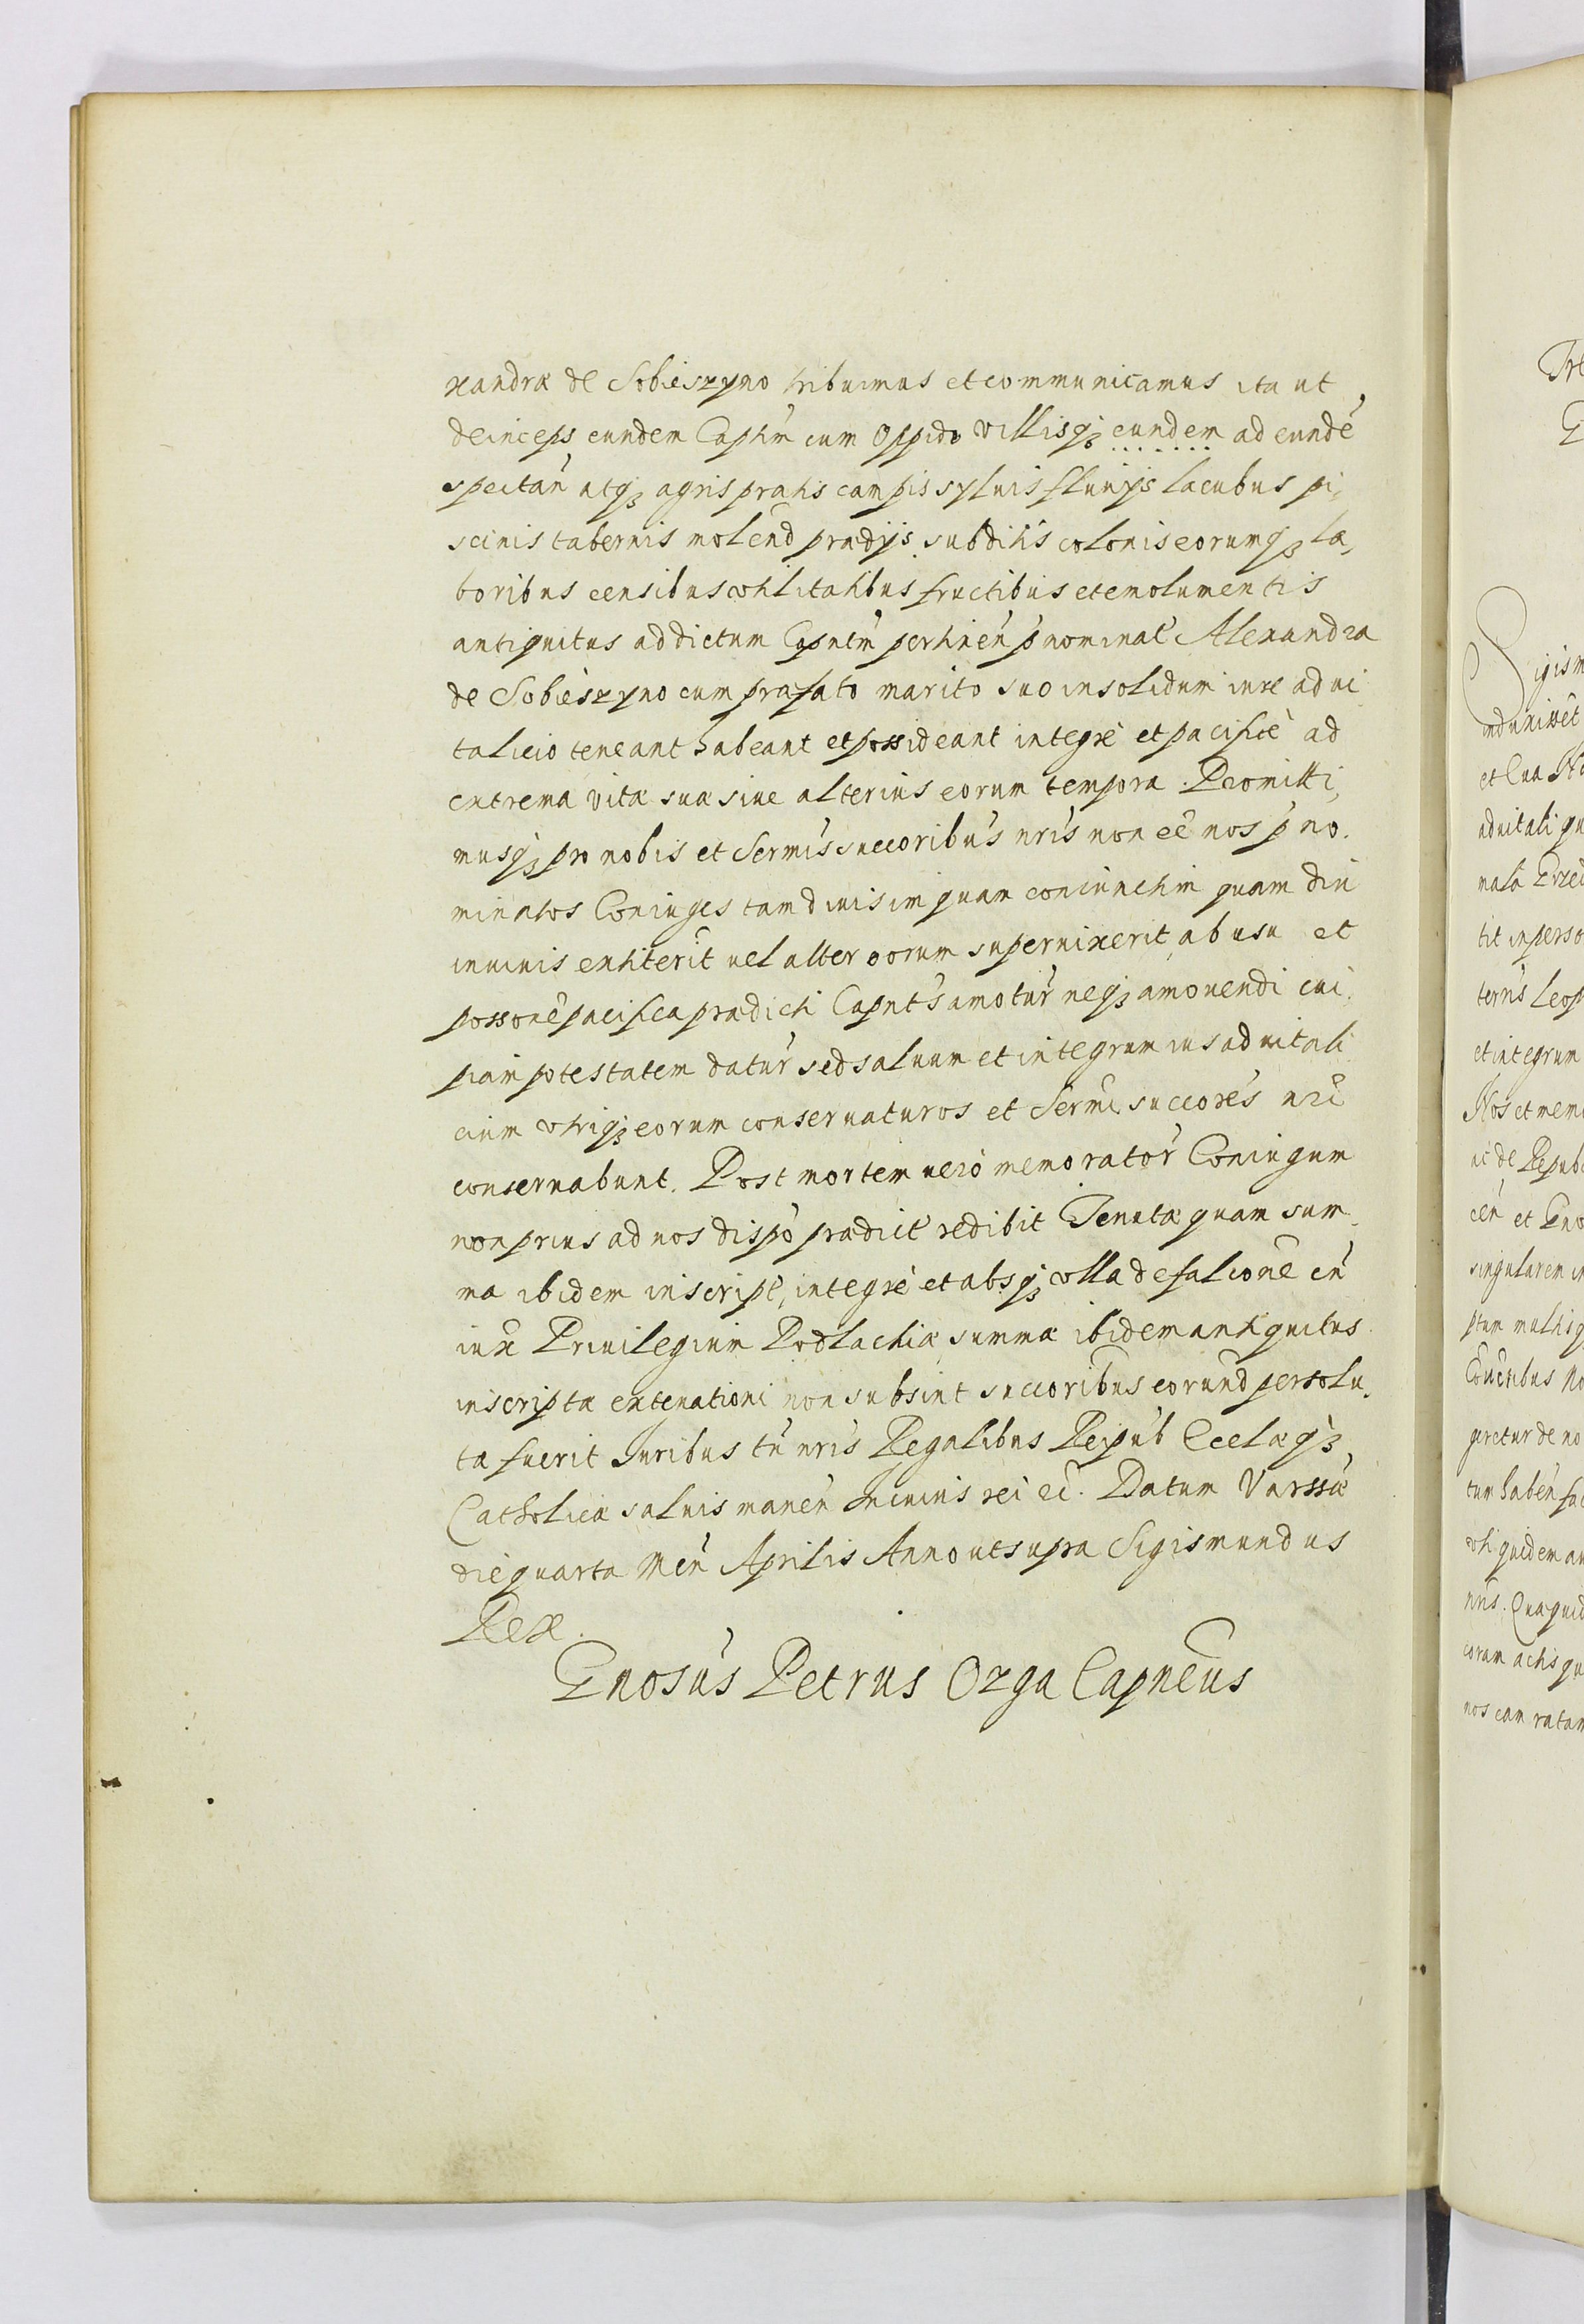 xandræ de Sobieszyno tribuimus et communicamus ita ut
deinceps eundem Captm̃ cum Oppido Villisqꝫ eundem ad eundẽ
spectañ atqꝫ agris pratis campis syluis fluuijs lacubus pi,
scinis tabernis molend prædijs subditis colonis eorumqꝫ la,
boribus censibus vtilitatibus fructibus et emolumentis
antiquitus ad dictum Capntm̃ pertineñ p̃nominat̃ Alexandra
de Sobieszyno cum præfato marito suo in solidum iure adui
talicio teneant habeant et possideant integrè et pacificè ad
extrema vitæ suæ siue alterius eorum tempora. Promitti,
musqꝫ pro nobis et Sermis succoribus nris non eẽ nos p̃no.
minatos Coniuges tam diuisim quam coniunctim quam diu
in viuis extiterit vel alter eorum superuixerit, ab usu et
possonẽ pacifica prædicti Capnts̃ amotur̃ neqꝫ amouendi cui,
piam potestatem datur̃ sed saluum et integrum ius aduitali
cium vtriqꝫ eorum conseruaturos et Sermi succores nri
conseruabunt. Post mortem verò memorator̃ Coniugum
non prius ad nos dispõ prædict̃ redibit Tenutæ quam sum,
ma ibidem inscript̃, integrè et absqꝫ vlla defalcione cũ
iux̃ Priuilegium Podlachiæ summæ ibidem antiquitus
inscriptæ extenationi non subsint succoribus eorund persolu,
ta fuerit Iuribus tñ nris Regalibus Reipub Ecclæqꝫ
Catholicæ saluis maneñ In cuius rei ec̃. Datum Varssæ
die quarta Meñ Aprilis Anno ut supra Sigismundus
Rex.
Gnosus Petrus Ozga Capneus
Sigism
ad uitali qu
tit in perso
et integrum
Nos et mem
ac de Repub
singularem in
ptum multisq
tum habeñ fac
coram actis qu
nos eam ratam